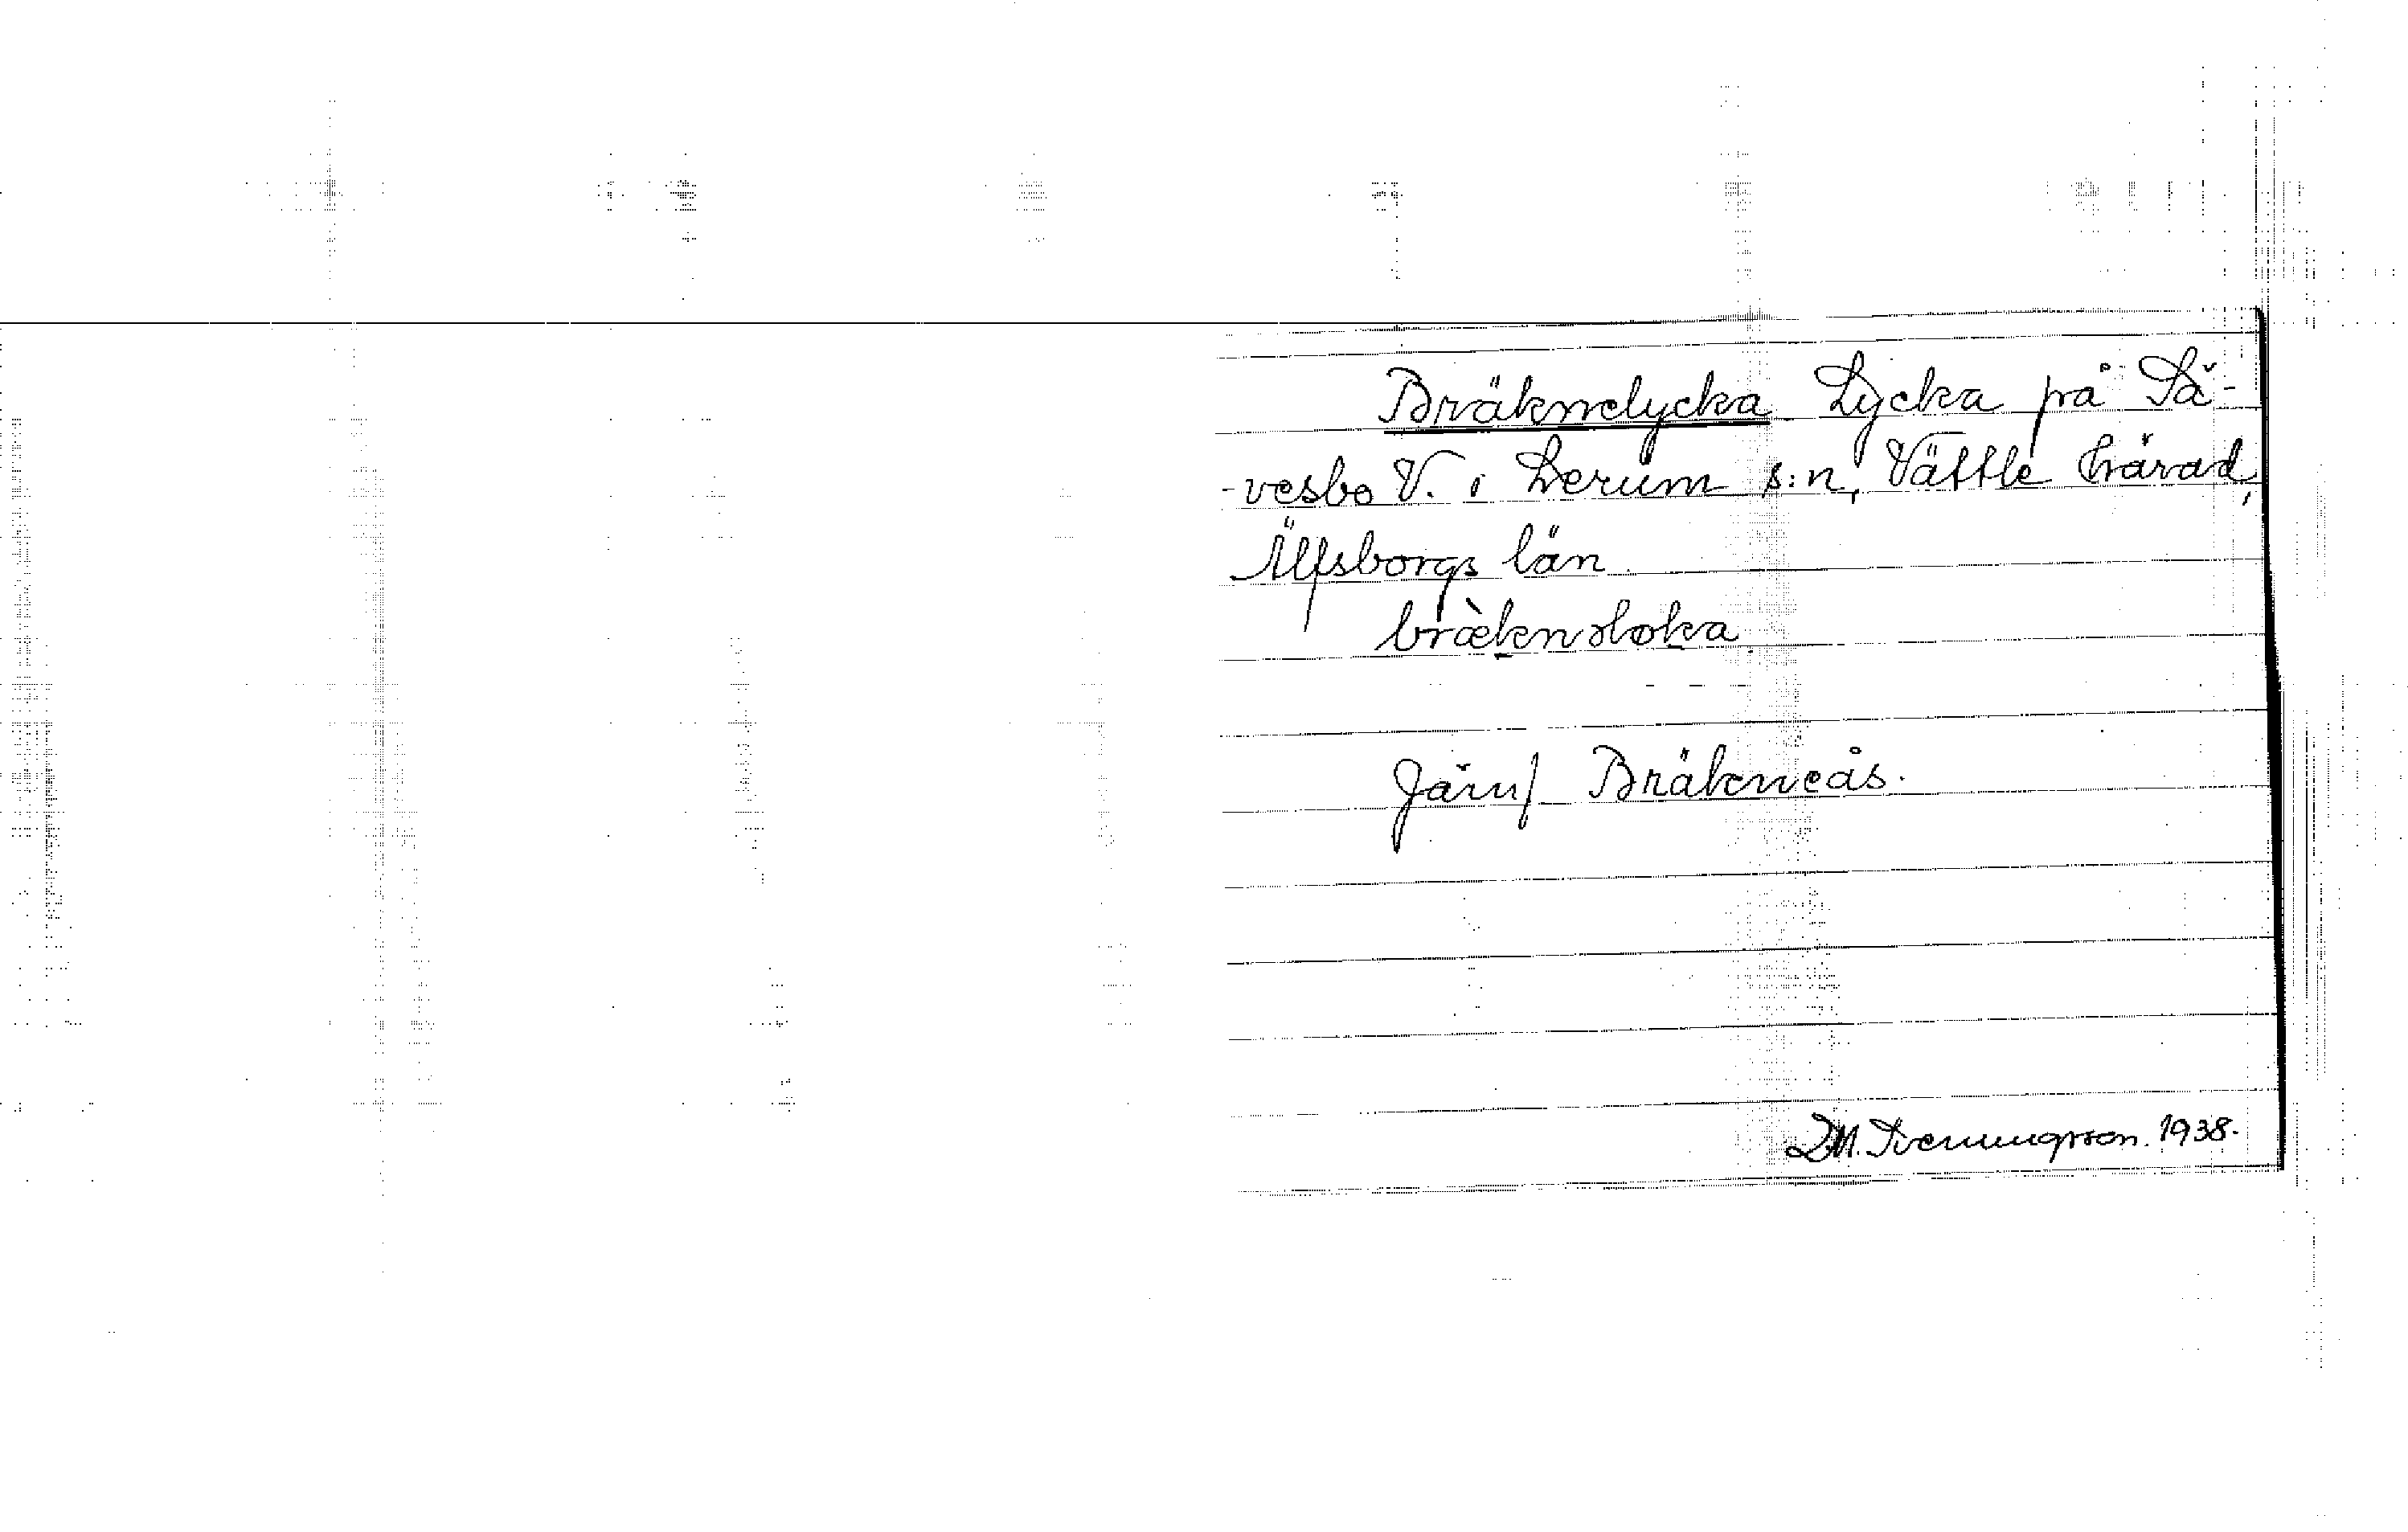 Bräknelycka Lycka på Sä-
-vesbo V. i Lerum s:n, Vättle härad,
Älfsborgs län
Järnf Bräkneås.
D.M. Svenungsson. 1938.